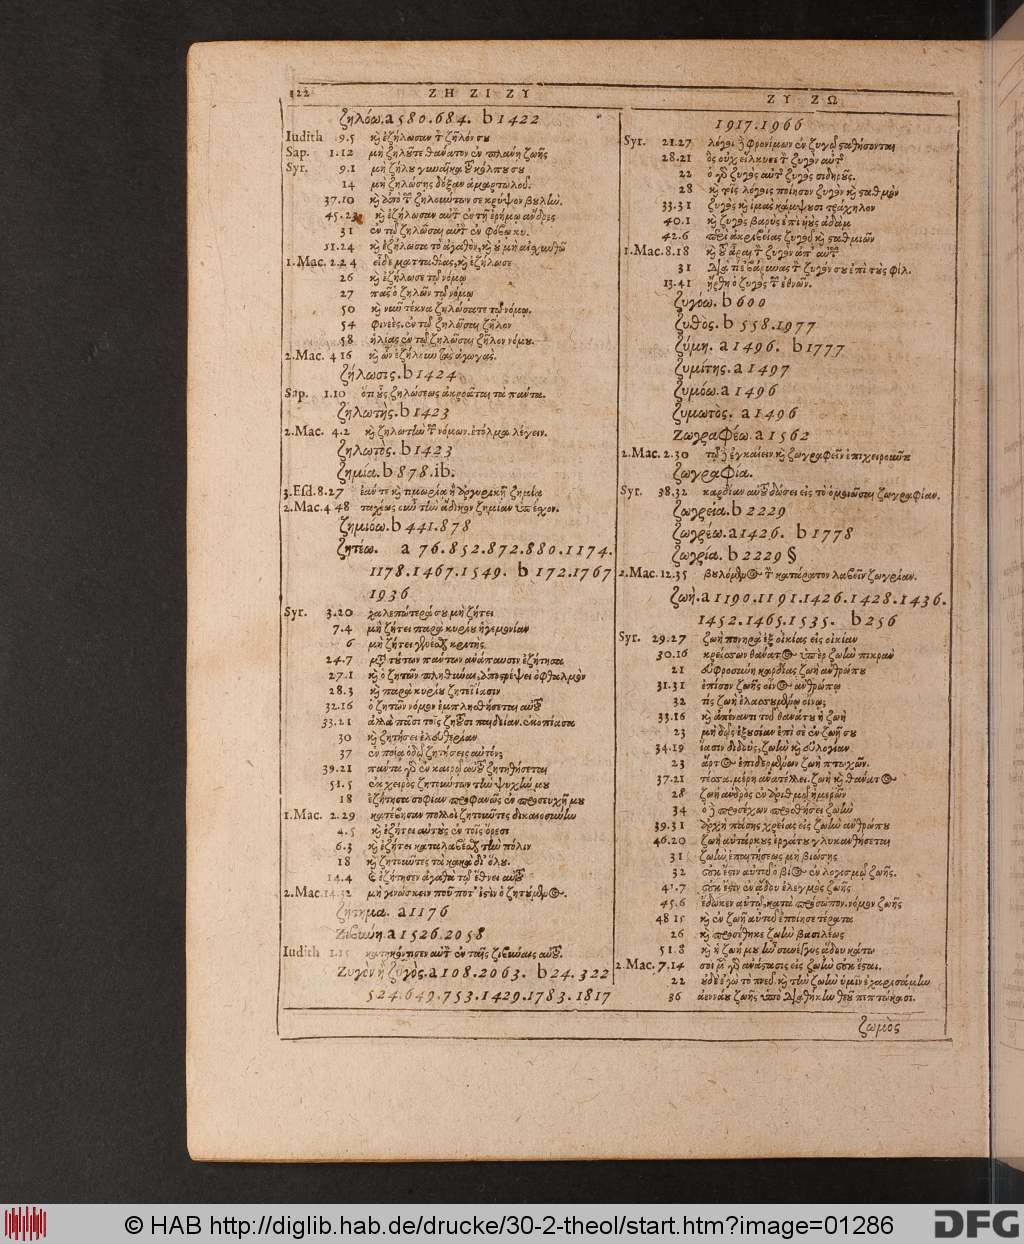 122 ΖΗ ΖΙ ΖΥ
ζηλόω. a 580.684. b 1422
Iudith 9.5 καὶ ἐζήλωσαν τ ζῆλόν σου
Sap. 1.12 μὴ ζηλοῦτε θάνατον ἐν πλάνῃ ζωῆς
Syr. 9.1 μὴ ζήλου γυναῖκα κόλπου σου
14 μὴ ζηλώσῃς δόξαν ἁμαρτωλοῦ.
37.10 καὶ ἀπὸ τῶν ζηλούντων σε κρύψον βουλήν.
45.23 καὶ ἐζήλωσαν αὐτὸν ἐν τῇ ἐρήμῳ ἄνδρες
31 ἐν τῷ ζηλῶσαι αὐτὸν ἐν φόβῳ κυ.
51.24 καὶ ἐζήλωσα τὸ ἀγαθὸν, καὶ οὐ μὴ αἰσχυνθῶ
1.Mac. 2.24 εἶδε ματταθίας, καὶ ἐζήλωσε
26 καὶ ἐζήλωσε τῷ νόμῳ
27 πᾶς ὁ ζηλῶν τῷ νόμῳ
50 καὶ νῦν τέκνα ζηλώσατε τῷ νόμῳ.
54 φινεὲς. ἐν τῷ ζηλῶσαι ζῆλον
58 ἠλίας ἐν τῷ ζηλῶσαι ζῆλον νόμου.
2.Mac. 4 16 καὶ ὧν ἐζήλουν τὰς ἀγωγὰς.
ζήλωσις. b 1424
Sap. 1.10 ὅτι οὖς ζηλώσεως ἀκροᾶται τὰ πάντα.
ζηλωτὴς. b 1423
2.Mac. 4.2 καὶ ζηλωτὴν τῶν νόμων. ἐτόλμα λέγειν.
ζηλωτὸς. b 1423
ζημία. b 878. ib.
3.Esd. 8.27 ἐάν τε καὶ τιμωρία ἢ ἀργυρικῇ ζημίᾳ
2.Mac. 4 48 ταχέως οὖν τὴν ἄδικον ζημίαν ὑπέσχον.
ζημιόω. b 441.878
ζητέω. a 76.852.872.880.1174.
1178.1467.1549. b 172.1767
1936
Syr. 3.20 χαλεπώτερά σου μὴ ζήτει
7.4 μὴ ζήτει παρὰ κυρίου ἡγεμονίαν
6 μὴ ζήτει γενέσθαι κριτὴς.
24.7 μετὰ τούτων πάντων ἀνάπαυσιν ἐζήτησα
27.1 καὶ ὁ ζητῶν πληθῦναι, ἀποστρέψει ὀφθαλμὸν
28.3 καὶ παρὰ κυρίου ζητεῖ ἴασιν
32.16 ὁ ζητῶν νόμον ἐμπλησθήσεται αὐτοῦ
33.21 ἀλλὰ πᾶσι τοῖς ζητοῦσι παιδείαν. ἐκοπίασα
30 καὶ ζητήσει ἐλευθερίαν
37 ἐν ποίᾳ ὁδῷ ζητήσεις αὐτόν;
39.21 πάντα γὰρ ἐν καιρῷ αὐτοῦ ζητηθήσεται
51.5 ἐκ χειρὸς ζητούντων τὴν ψυχήν μου
18 ἐζήτησα σοφίαν προφανῶς ἐν προσευχῇ μου
1.Mac. 2.29 κατέβησαν πολλοὶ ζητοῦντες δικαιοσύνην
4.5 καὶ ἐζήτει αὐτοὺς ἐν τοῖς ὄρεσι
6.3 καὶ ἐζήτει καταλαβέσθαι τὴν πόλιν
18 καὶ ζητοῦντες τὰ κακὰ δι' ὅλου.
14.4 καὶ ἐζήτησεν ἀγαθὰ τῷ ἔθνει αὐτοῦ
2.Mac. 14.32 μὴ γινώσκειν ποῦ ποτ' ἐστὶν ὁ ζητούμενος.
ζήτημα. a 1176
Ζιβύνη. a 1526.2058
Iudith 1.15 κατηκόντισεν αὐτὸν ἐν ταῖς ζιβύναις αὐτοῦ.
Ζυγὸν ἢ ζυγὸς. a 108.2063. b 24.322
524.649.753.1429.1783.1817
ΖΥ ΖΩ
1917.1966
Syr. 21.27 λόγοι δὲ φρονίμων ἐν ζυγῷ σταθήσονται
28.21 ὃς οὐχ εἵλκυσε τὸν ζυγὸν αὐτοῦ
22 ὁ γὰρ ζυγὸς αὐτοῦ ζυγὸς σιδηροῦς.
28 καὶ τοῖς λόγοις ποίησον ζυγὸν καὶ σταθμὸν
33.31 ζυγὸς καὶ ἱμὰς κάμψουσι τράχηλον
40.1 καὶ ζυγὸς βαρὺς ἐπὶ υἱοὺς ἀδὰμ
42.6 περὶ ἀκριβείας ζυγοῦ καὶ σταθμίων
1.Mac. 8.18 καὶ τοῦ ἆραι τὸν ζυγὸν ἀπ' αὐτῶν
31 διὰ τί ἐβάρυνας τὸν ζυγόν σου ἐπὶ τοὺς φίλ.
13.41 ἤρθη ὁ ζυγὸς τῶν ἐθνῶν.
ζυγόω. b 600
ζυθὸς. b 558.1977
ζύμη. a 1496. b 1777
ζυμίτης. a 1497
ζυμόω. a 1496
ζυμωτὸς. a 1496
Ζωγραφέω. a 1562
2.Mac. 2.30 τῷ δὲ ἐγκαίειν καὶ ζωγραφεῖν ἐπιχειροῦντι
ζωγραφία.
Syr. 38.32 καρδίαν αὐτοῦ δώσει εἰς τὸ ὁμοιῶσαι ζωγραφίαν.
ζωγρεία. b 2229
ζωγρέω. a 1426. b 1778
ζωγρία. b 2229 §
2.Mac. 12.35 βουλόμενος τὸν κατάρατον λαβεῖν ζωγρίαν.
ζωὴ. a 1190.1191.1426.1428.1436.
1452.1465.1535. b 256
Syr. 29.27 ζωὴ πονηρὰ ἐξ οἰκίας εἰς οἰκίαν
30.16 κρείσσων θάνατος ὑπὲρ ζωὴν πικρὰν
21 εὐφροσύνη καρδίας ζωὴ ἀνθρώπου
31.31 ἐπίσον ζωῆς οἶνος ἀνθρώπῳ
32 τίς ζωὴ ἐλασσουμένῳ οἴνῳ;
33.16 καὶ ἀπέναντι τοῦ θανάτου ἡ ζωὴ
23 μὴ δῷς ἐξουσίαν ἐπὶ σὲ ἐν ζωῇ σου
34.19 ἴασιν διδοὺς, ζωὴν καὶ εὐλογίαν
23 ἄρτος ἐπιδεομένων ζωὴ πτωχῶν.
37.21 τέσσαρα μέρη ἀνατέλλει. ζωὴ καὶ θάνατος
28 ζωὴ ἀνδρὸς ἐν ἀριθμῷ ἡμερῶν
34 ὁ δὲ προσέχων προσθήσει ζωὴν
39.31 ἀρχὴ πάσης χρείας εἰς ζωὴν ἀνθρώπου
46.20 ζωὴ αὐτάρκους ἐργάτου γλυκανθήσεται
31 ζωὴν ἐπαιτήσεως μὴ βιώσῃς
32 οὐκ ἔστιν αὐτοῦ ὁ βίος ἐν λογισμῷ ζωῆς.
41.7 οὐκ ἔστιν ἐν ᾅδου ἐλεγμὸς ζωῆς
45.6 ἔδωκεν αὐτῷ, κατὰ πρόσωπον. νόμον ζωῆς
48 15 καὶ ἐν ζωῇ αὐτοῦ ἐποίησε τέρατα
26 καὶ προσέθηκε ζωὴν βασιλέως
51.8 καὶ ἡ ζωή μου ἦν σύνεγγυς ᾅδου κάτω
2.Mac. 7.14 σοὶ μὲν γὰρ ἀνάστασις εἰς ζωὴν οὐκ ἔσται.
22 οὐδὲ ἐγὼ τὸ πνεῦμα καὶ τὴν ζωὴν ὑμῖν ἐχαρισάμην
36 ἀεννάου ζωῆς ὑπὸ διαθήκην θεοῦ πεπτώκασι.
ζωμὸς
© HAB http://diglib.hab.de/drucke/30-2-theol/start.htm?image=01286
DFG